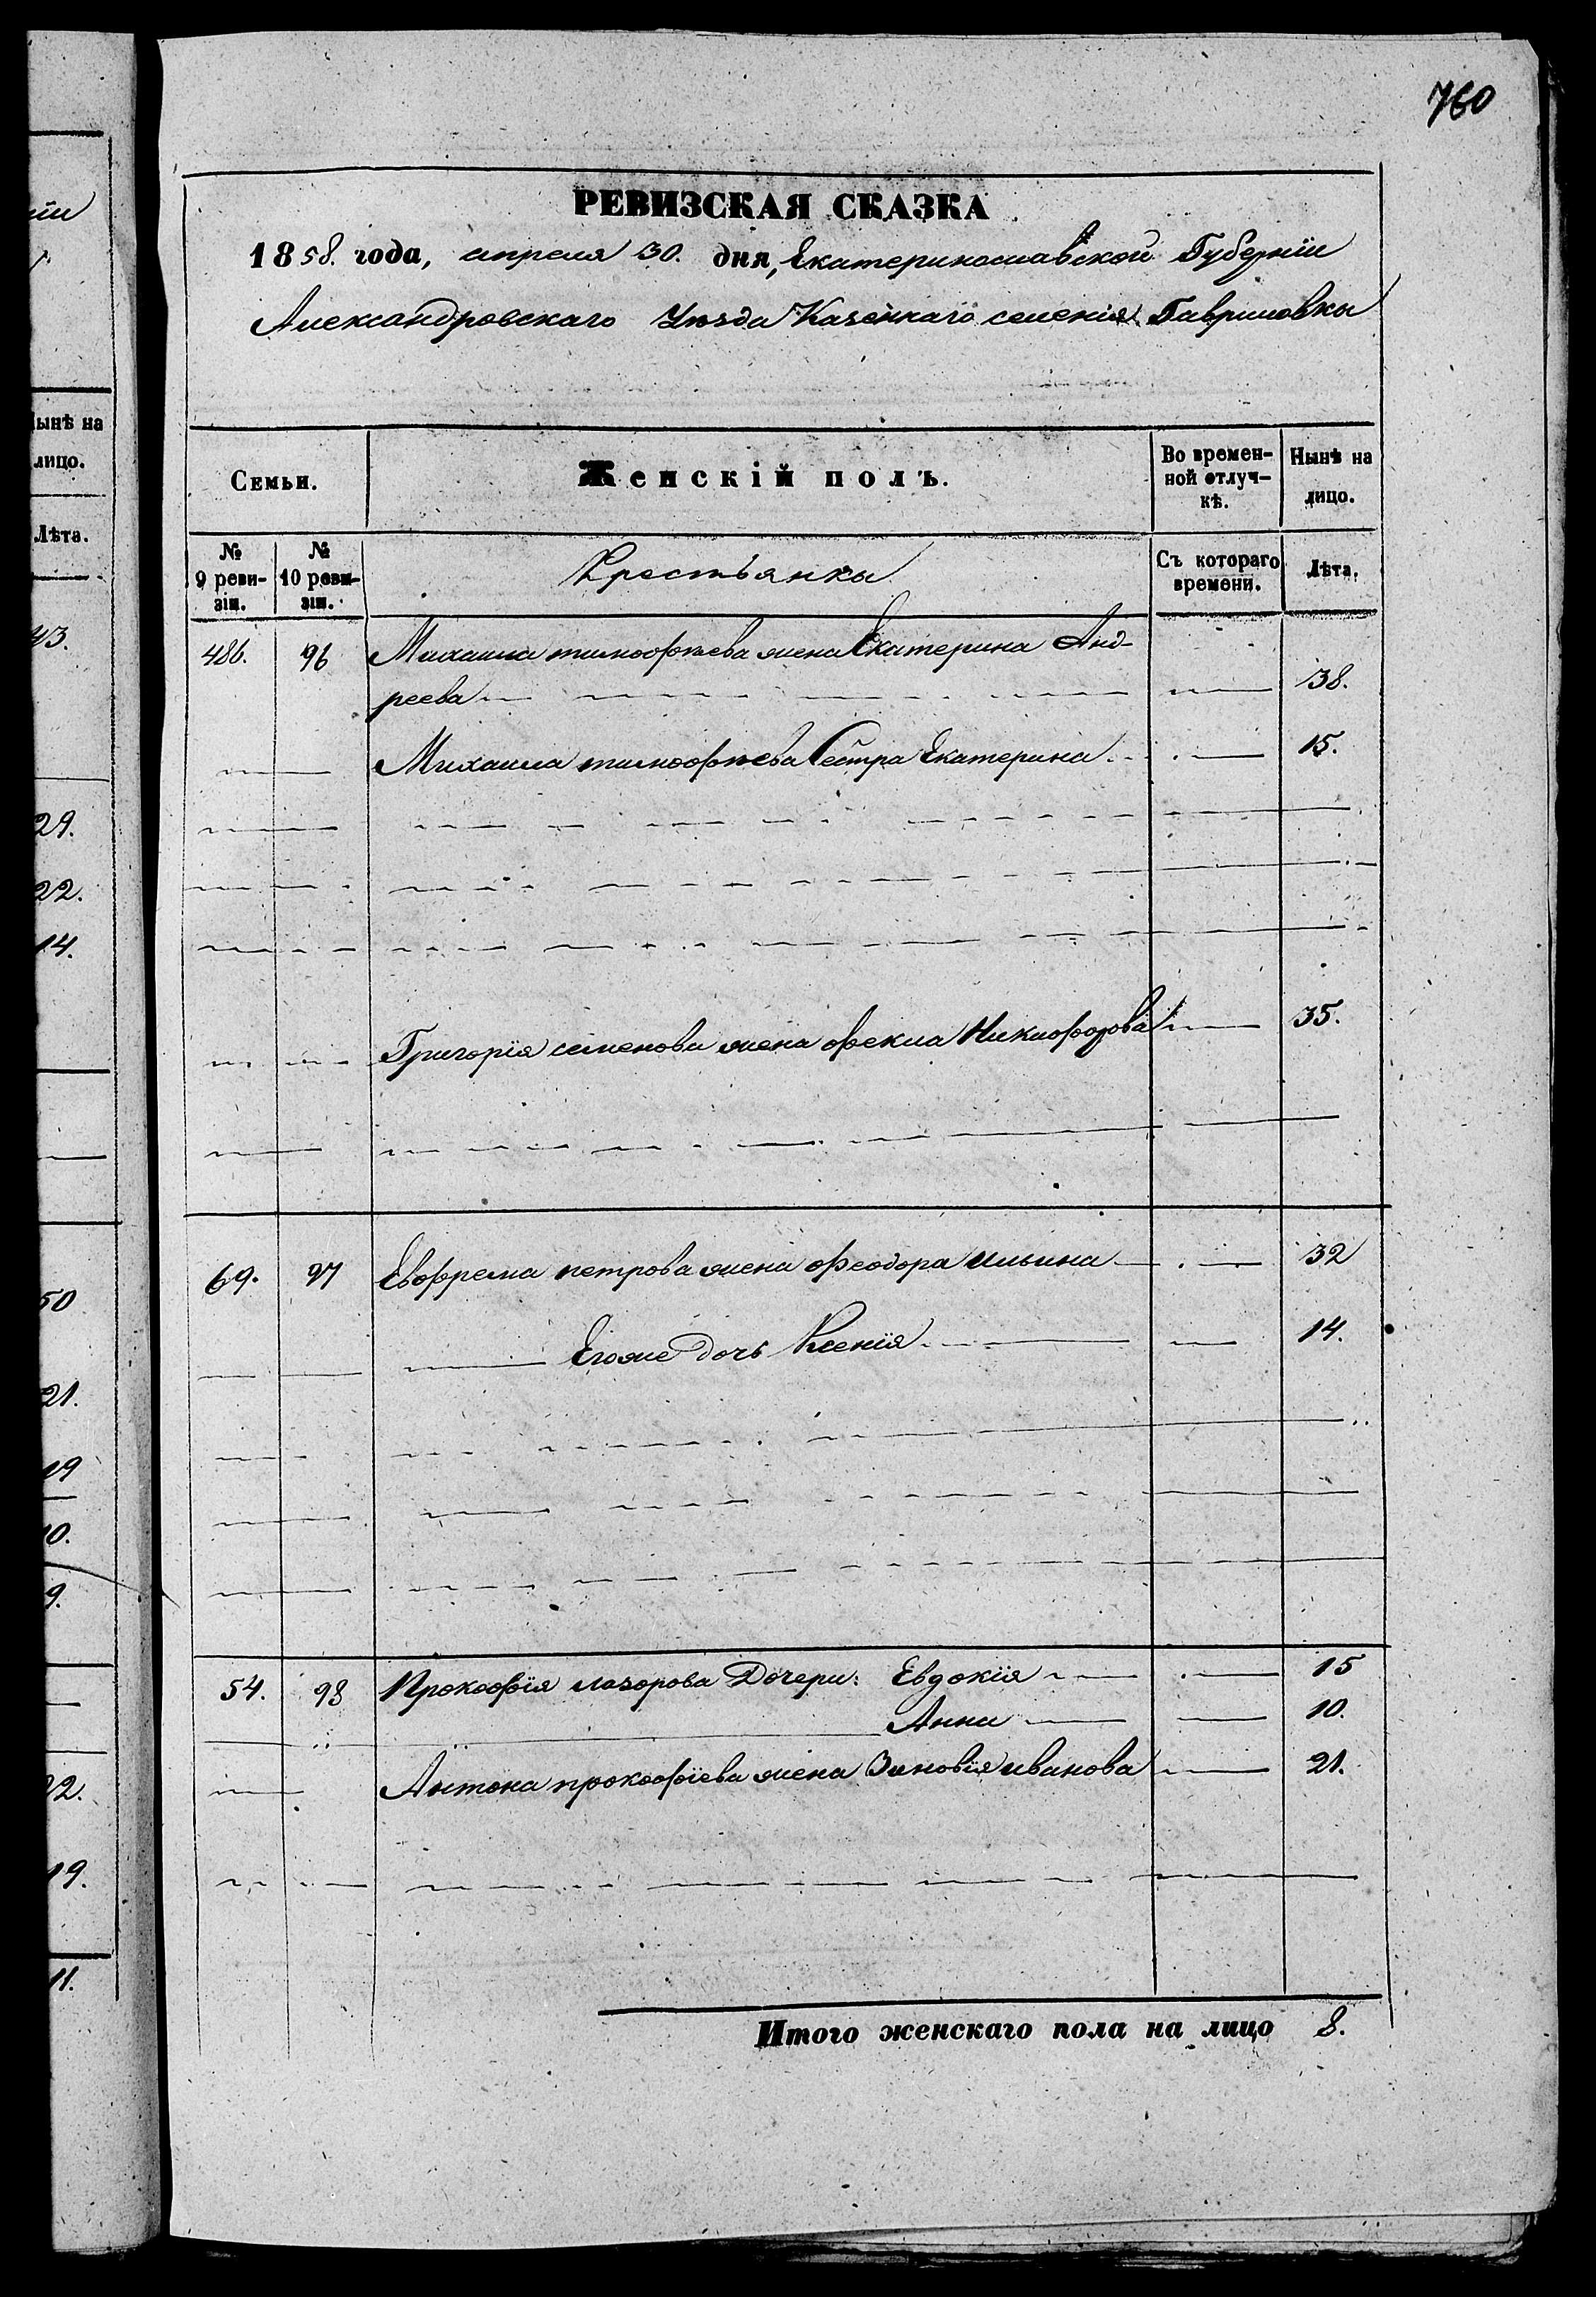 760
РЕВИЗСКАЯ СКАЗКА
1858. года, апреля 30. дня, Екатеринославской Губерніи
Александровскаго Уѣзда Казеннаго селенія Гавриловки
Семьи.
Женскій полъ.
Во времен-
ной отлуч-
кѣ.
Нынѣ на
лицо.
№
9 реви-
зіи.
№
10 реви-
зіи.
Крестьянки
Съ котораго
времени.
Лѣта.
486. 96 Михаила тимофѣева жена Екатерина Анд-
реева 38.
Михаила тимофѣева Сестра Екатерина 15.
Григорія семенова жена фекла Никифорова 35.
69. 97 Евфрема петрова жена феодора ильина 32
Егоже дочь Ксенія 14.
54. 98 Прокофія лазорова Дочери: Евдокія 15
Анна 10.
Антона прокофіева жена Зиновія иванова 21.
Итого женскаго пола на лицо 8.
ніи
Нынѣ на
лицо.
Лѣта.
43.
29.
22.
14.
50
21.
19
10.
9.
22.
19.
11.